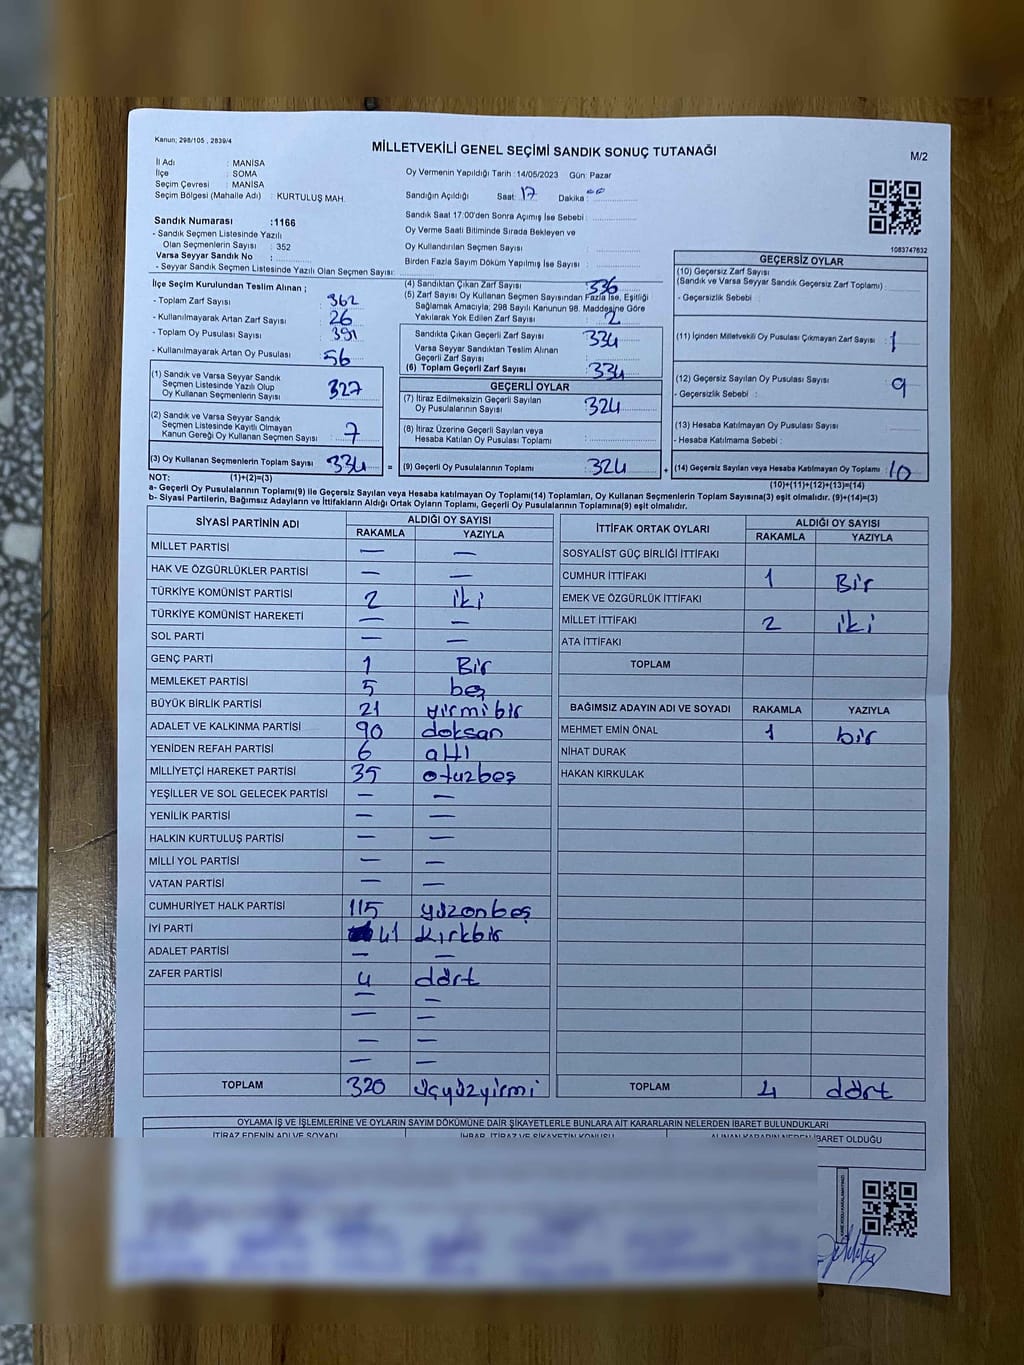 Kanun; 298/105 , 2839/4
MİLLETVEKİLİ GENEL SEÇİMİ SANDIK SONUÇ TUTANAĞI
M/2
İl Adı : MANİSA
İlçe : SOMA
Seçim Çevresi : MANİSA
Seçim Bölgesi (Mahalle Adı) : KURTULUŞ MAH.
Sandık Numarası :1166
- Sandık Seçmen Listesinde Yazılı
Olan Seçmenlerin Sayısı : 352
Varsa Seyyar Sandık No :
- Seyyar Sandık Seçmen Listesinde Yazılı Olan Seçmen Sayısı:
Oy Vermenin Yapıldığı Tarih :14/05/2023 Gün: Pazar
Sandığın Açıldığı Saat: 17 Dakika : 00
Sandık Saat 17:00'den Sonra Açımış İse Sebebi :
Oy Verme Saati Bitiminde Sırada Bekleyen ve
Oy Kullandırılan Seçmen Sayısı :
Birden Fazla Sayım Döküm Yapılmış İse Sayısı :
1083747632
İlçe Seçim Kurulundan Teslim Alınan ;
- Toplam Zarf Sayısı : 362
- Kullanılmayarak Artan Zarf Sayısı : 26
- Toplam Oy Pusulası Sayısı : 391
- Kullanılmayarak Artan Oy Pusulası : 56
(1) Sandık ve Varsa Seyyar Sandık
Seçmen Listesinde Yazılı Olup
Oy Kullanan Seçmenlerin Sayısı : 327
(2) Sandık ve Varsa Seyyar Sandık
Seçmen Listesinde Kayıtlı Olmayan
Kanun Gereği Oy Kullanan Seçmen Sayısı : 7
(3) Oy Kullanan Seçmenlerin Toplam Sayısı : 334 =
(4) Sandıktan Çıkan Zarf Sayısı : 336
(5) Zarf Sayısı Oy Kullanan Seçmen Sayısından Fazla İse, Eşitliği
Sağlamak Amacıyla; 298 Sayılı Kanunun 98. Maddesine Göre
Yakılarak Yok Edilen Zarf Sayısı : 2
Sandıkta Çıkan Geçerli Zarf Sayısı : 334
Varsa Seyyar Sandıktan Teslim Alınan
Geçerli Zarf Sayısı :
(6) Toplam Geçerli Zarf Sayısı : 334
GEÇERLİ OYLAR
(7) İtiraz Edilmeksizin Geçerli Sayılan
Oy Pusulalarının Sayısı : 324
(8) İtiraz Üzerine Geçerli Sayılan veya
Hesaba Katılan Oy Pusulası Toplamı :
(9) Geçerli Oy Pusulalarının Toplamı : 324 +
GEÇERSİZ OYLAR
(10) Geçersiz Zarf Sayısı
(Sandık ve Varsa Seyyar Sandık Geçersiz Zarf Toplamı) :
- Geçersizlik Sebebi :
(11) İçinden Milletvekili Oy Pusulası Çıkmayan Zarf Sayısı : 1
(12) Geçersiz Sayılan Oy Pusulası Sayısı : 9
- Geçersizlik Sebebi :
(13) Hesaba Katılmayan Oy Pusulası Sayısı :
- Hesaba Katılmama Sebebi :
(14) Geçersiz Sayılan veya Hesaba Katılmayan Oy Toplamı : 10
NOT: (1)+(2)=(3) (10)+(11)+(12)+(13)=(14)
a- Geçerli Oy Pusulalarının Toplamı(9) ile Geçersiz Sayılan veya Hesaba katılmayan Oy Toplamı(14) Toplamları, Oy Kullanan Seçmenlerin Toplam Sayısına(3) eşit olmalıdır. (9)+(14)=(3)
b- Siyasi Partilerin, Bağımsız Adayların ve İttifakların Aldığı Ortak Oyların Toplamı, Geçerli Oy Pusulalarının Toplamına(9) eşit olmalıdır.
SİYASİ PARTİNİN ADI ALDIĞI OY SAYISI
RAKAMLA YAZIYLA
MİLLET PARTİSİ — —
HAK VE ÖZGÜRLÜKLER PARTİSİ — —
TÜRKİYE KOMÜNİST PARTİSİ 2 iki
TÜRKİYE KOMÜNİST HAREKETİ — —
SOL PARTİ — —
GENÇ PARTİ 1 Bir
MEMLEKET PARTİSİ 5 beş
BÜYÜK BİRLİK PARTİSİ 21 yirmibir
ADALET VE KALKINMA PARTİSİ 90 doksan
YENİDEN REFAH PARTİSİ 6 altı
MİLLİYETÇİ HAREKET PARTİSİ 35 otuzbeş
YEŞİLLER VE SOL GELECEK PARTİSİ — —
YENİLİK PARTİSİ — —
HALKIN KURTULUŞ PARTİSİ — —
MİLLİ YOL PARTİSİ — —
VATAN PARTİSİ — —
CUMHURİYET HALK PARTİSİ 115 yüzonbeş
İYİ PARTİ 41 kırkbir
ADALET PARTİSİ — —
ZAFER PARTİSİ 4 dört
— —
— —
— —
— —
TOPLAM 320 üçyüzyirmi
İTTİFAK ORTAK OYLARI ALDIĞI OY SAYISI
RAKAMLA YAZIYLA
SOSYALİST GÜÇ BİRLİĞİ İTTİFAKI
CUMHUR İTTİFAKI 1 Bir
EMEK VE ÖZGÜRLÜK İTTİFAKI
MİLLET İTTİFAKI 2 iki
ATA İTTİFAKI
TOPLAM
BAĞIMSIZ ADAYIN ADI VE SOYADI RAKAMLA YAZIYLA
MEHMET EMİN ÖNAL 1 bir
NİHAT DURAK
HAKAN KIRKULAK
TOPLAM 4 dört
OYLAMA İŞ VE İŞLEMLERİNE VE OYLARIN SAYIM DÖKÜMÜNE DAİR ŞİKAYETLERLE BUNLARA AİT KARARLARIN NELERDEN İBARET BULUNDUKLARI
İTİRAZ EDENİN ADI VE SOYADI İHBAR, İTİRAZ VE ŞİKAYETİN KONUSU ALINAN KARARIN NEDEN İBARET OLDUĞU